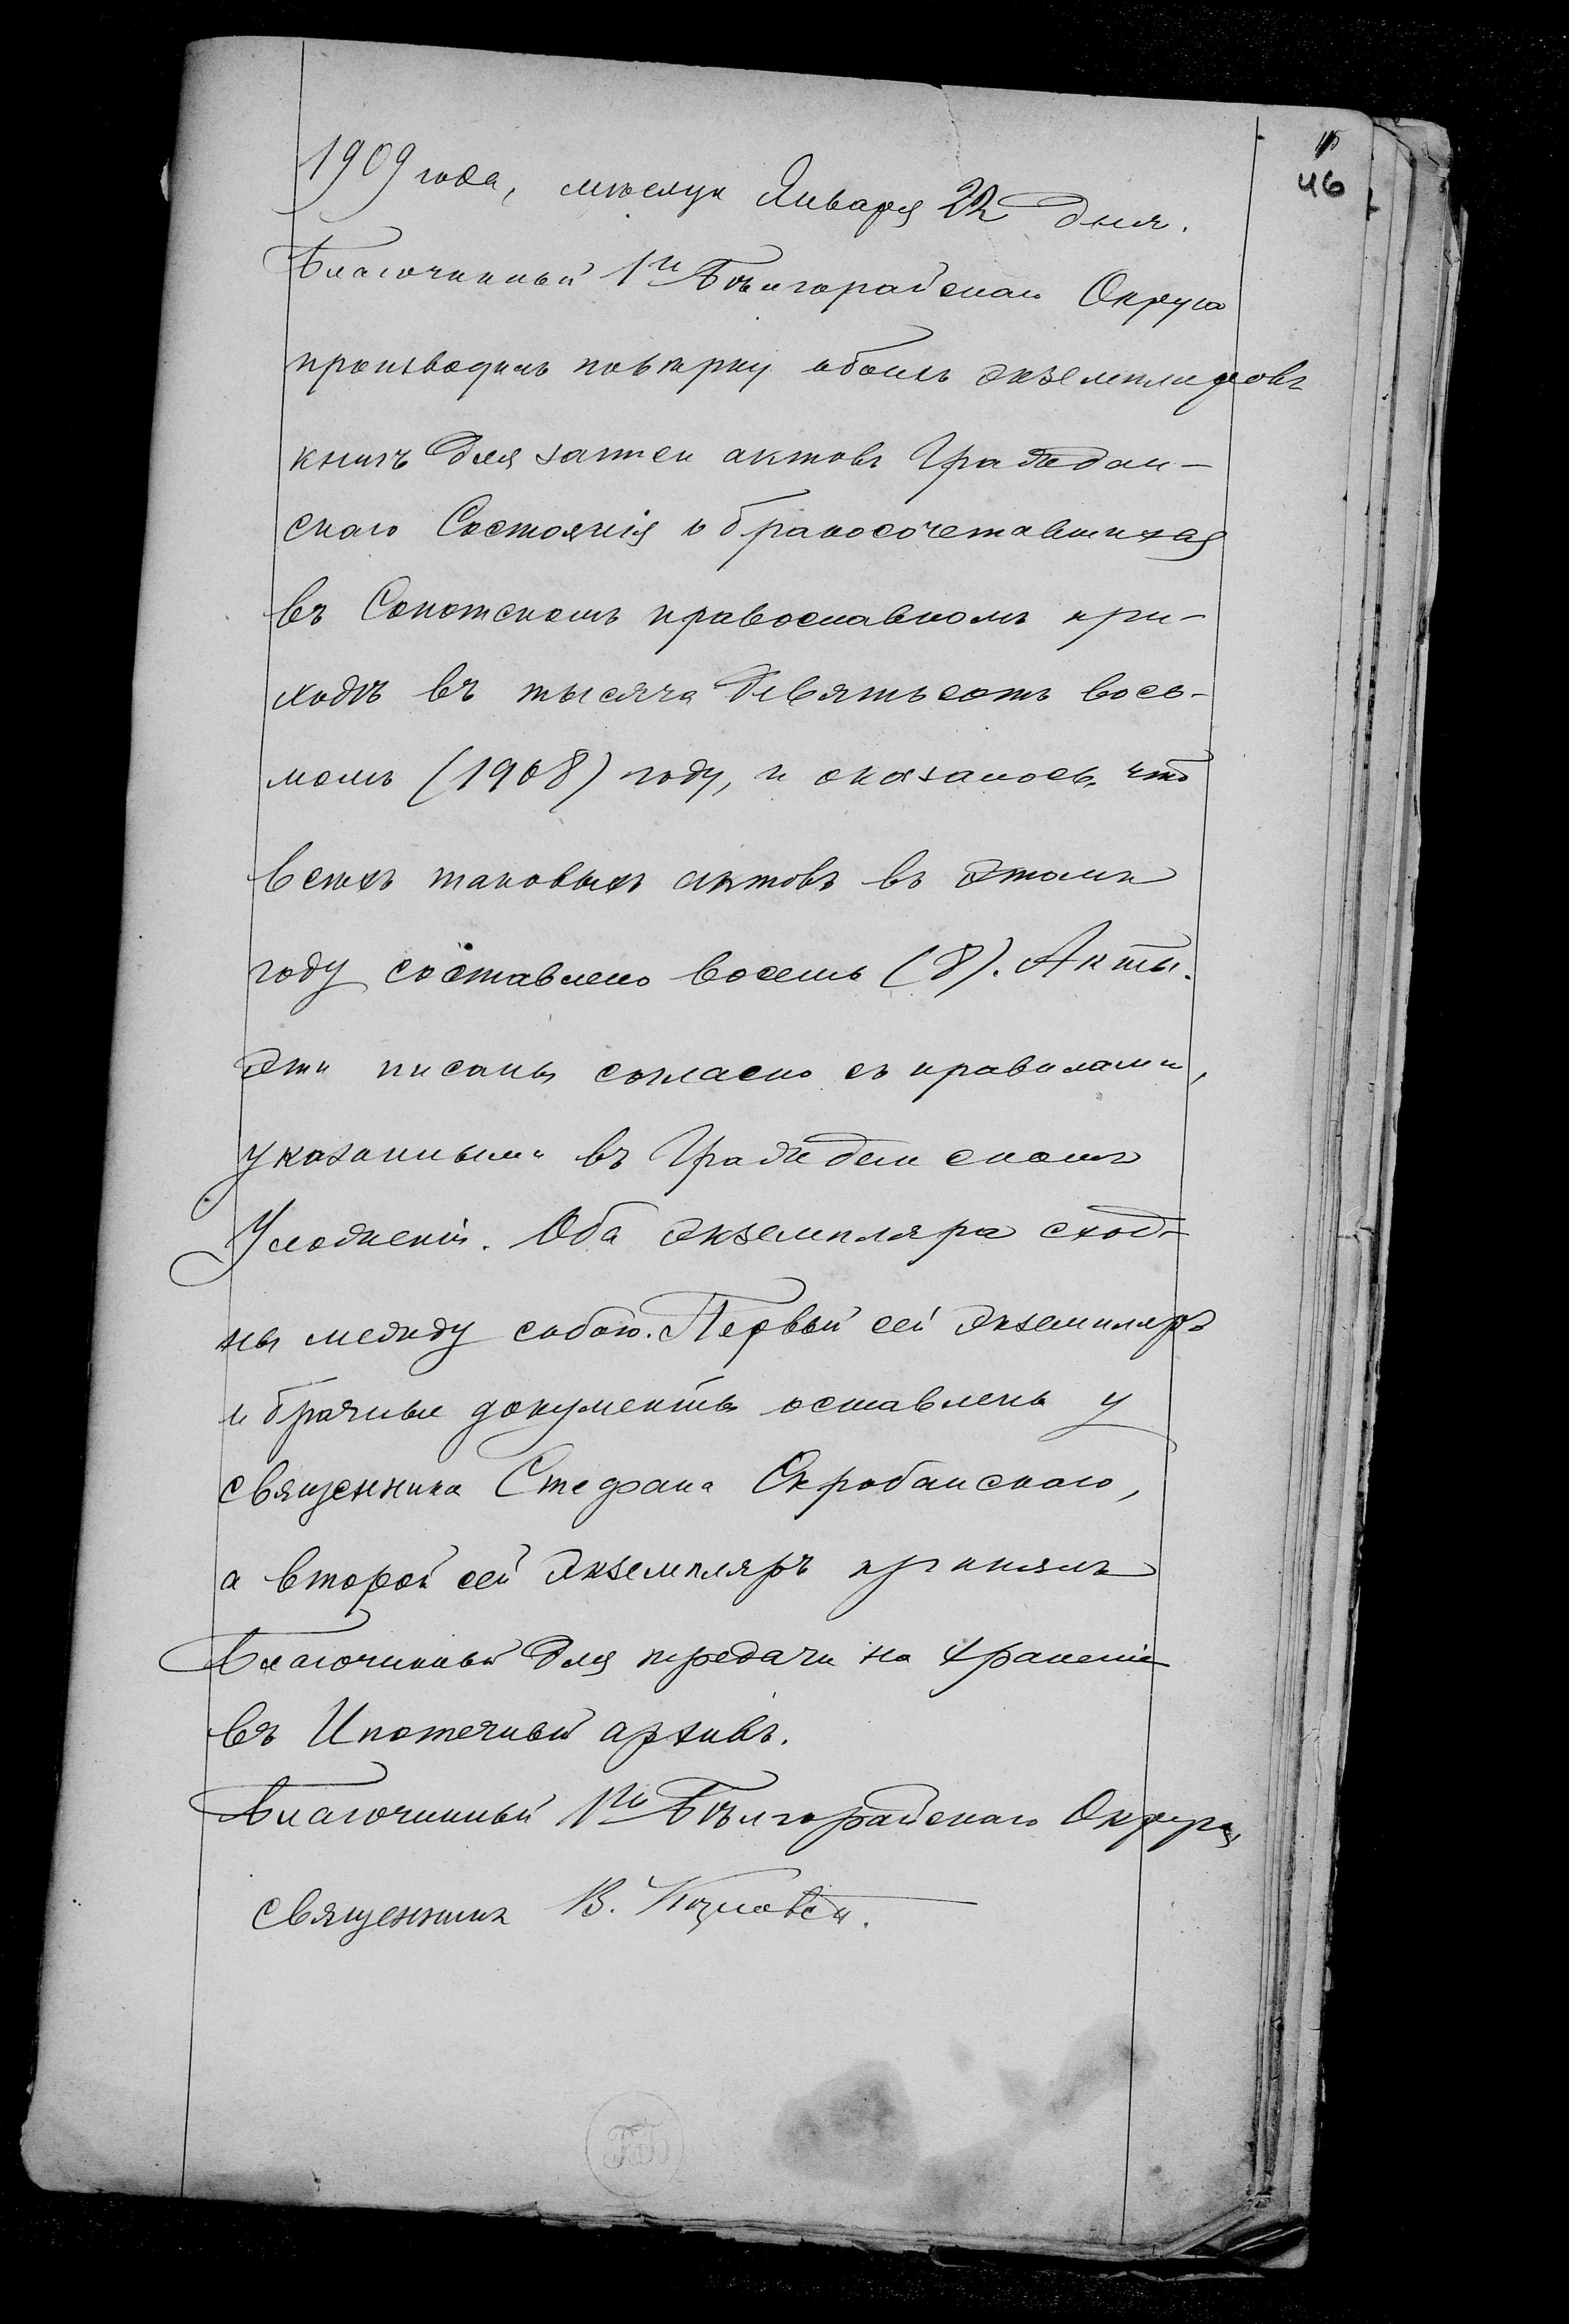 46
1909 года, мѣсяца Января 22 дня.
Благочинный 1го Бѣлгорайскаго Округа
производилъ повѣрку обоихъ экземпляровъ
книгъ для записи актовъ Граждан-
скаго Состоянія о бракосочетавшихся
въ Сопотскомъ православномъ при-
ходѣ въ тысяча девятьсотъ вось-
момъ (1908) году, и оказалось, что
всѣхъ таковыхъ актовъ въ этомъ
году составлено восемь (8). Акты
эти писаны согласно съ правилами,
указанными въ Гражданскомъ
Уложеніи. Оба экземпляра сход-
ны между собою. Первый сей экземпляръ
и брачные документы оставлены у
священника Стефана Скробанскаго,
а второй сей экземпляръ принялъ
Благочинный для передачи на храненіе
въ Ипотечный архивъ.
Благочинный 1го Бѣлгорайскаго Округа,
священникъ В.